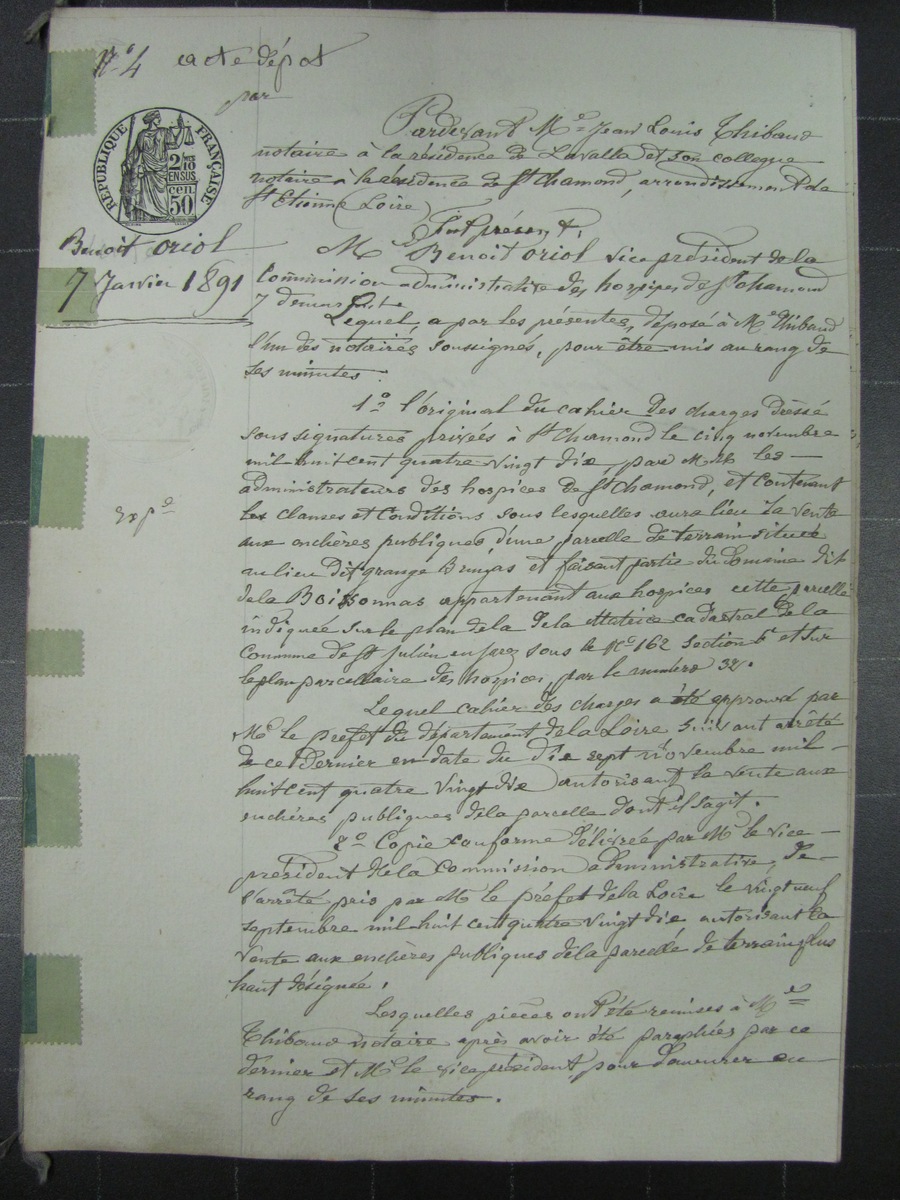 N° 4 acte dépot
par
RÉPUBLIQUE FRANÇAISE
2/10 EN SUS
50 cen.
Benoit Oriol
7 Janvier 1891
Pardevant Me Jean Louis Thibaud
notaire à la résidence de Lavalla et son collegue
notaire à la résidence de St Chamond, arrondissement de
St Etienne (Loire)
Fut présent.
M. Benoit Oriol vice président de la
Commission administrative des hospices de St Chamond
y demeurant
Lequel, a par les présentes, déposé à Me Thibaud
l'un des notaires soussignés, pour être mis au rang de
ses minutes.
1° l'original du cahier des charges dressé
sous signatures privées à St Chamond le cinq novembre
mil huit cent quatre vingt dix, par M.M. les
administrateurs des hospices de St Chamond, et contenant
les clauses et conditions sous lesquelles aura lieu la vente
aux enchères publiques, d'une parcelle de terrain située
au lieu dit grange Bruyas et faisant partie du Domaine dit
de la Boissonnas appartenant aux hospices cette parcelle
indiquée sur le plan de la de la Matrice cadastral de la
Commune de St Julien en Jarez sous le N° 162 section
et sur
le plan parcellaire des hospices, par le numéro 32.
Expé
Lequel cahier des charges a été approuvé par
Mr le prefet du département de la Loire suivant arrêté
de ce dernier en date du dix sept novembre mil
huit cent quatre vingt dix autorisant la vente aux
enchères publiques de la parcelle dont il sagit.
2° Copie conforme délivrée par Mr le vice
président de la Commission administrative, de
l'arrêté pris par Mr le préfet de la Loire le vingt neuf
septembre mil huit cent quatre vingt dix autorisant la
vente aux enchères publiques de la parcelle de terrain plus
haut désignée.
Lesquelles pièces ont été remises à Me
Thibaud notaire après avoir été paraphées par ce
dernier et Mr le vice président, pour demeurer au
rang de ses minutes.